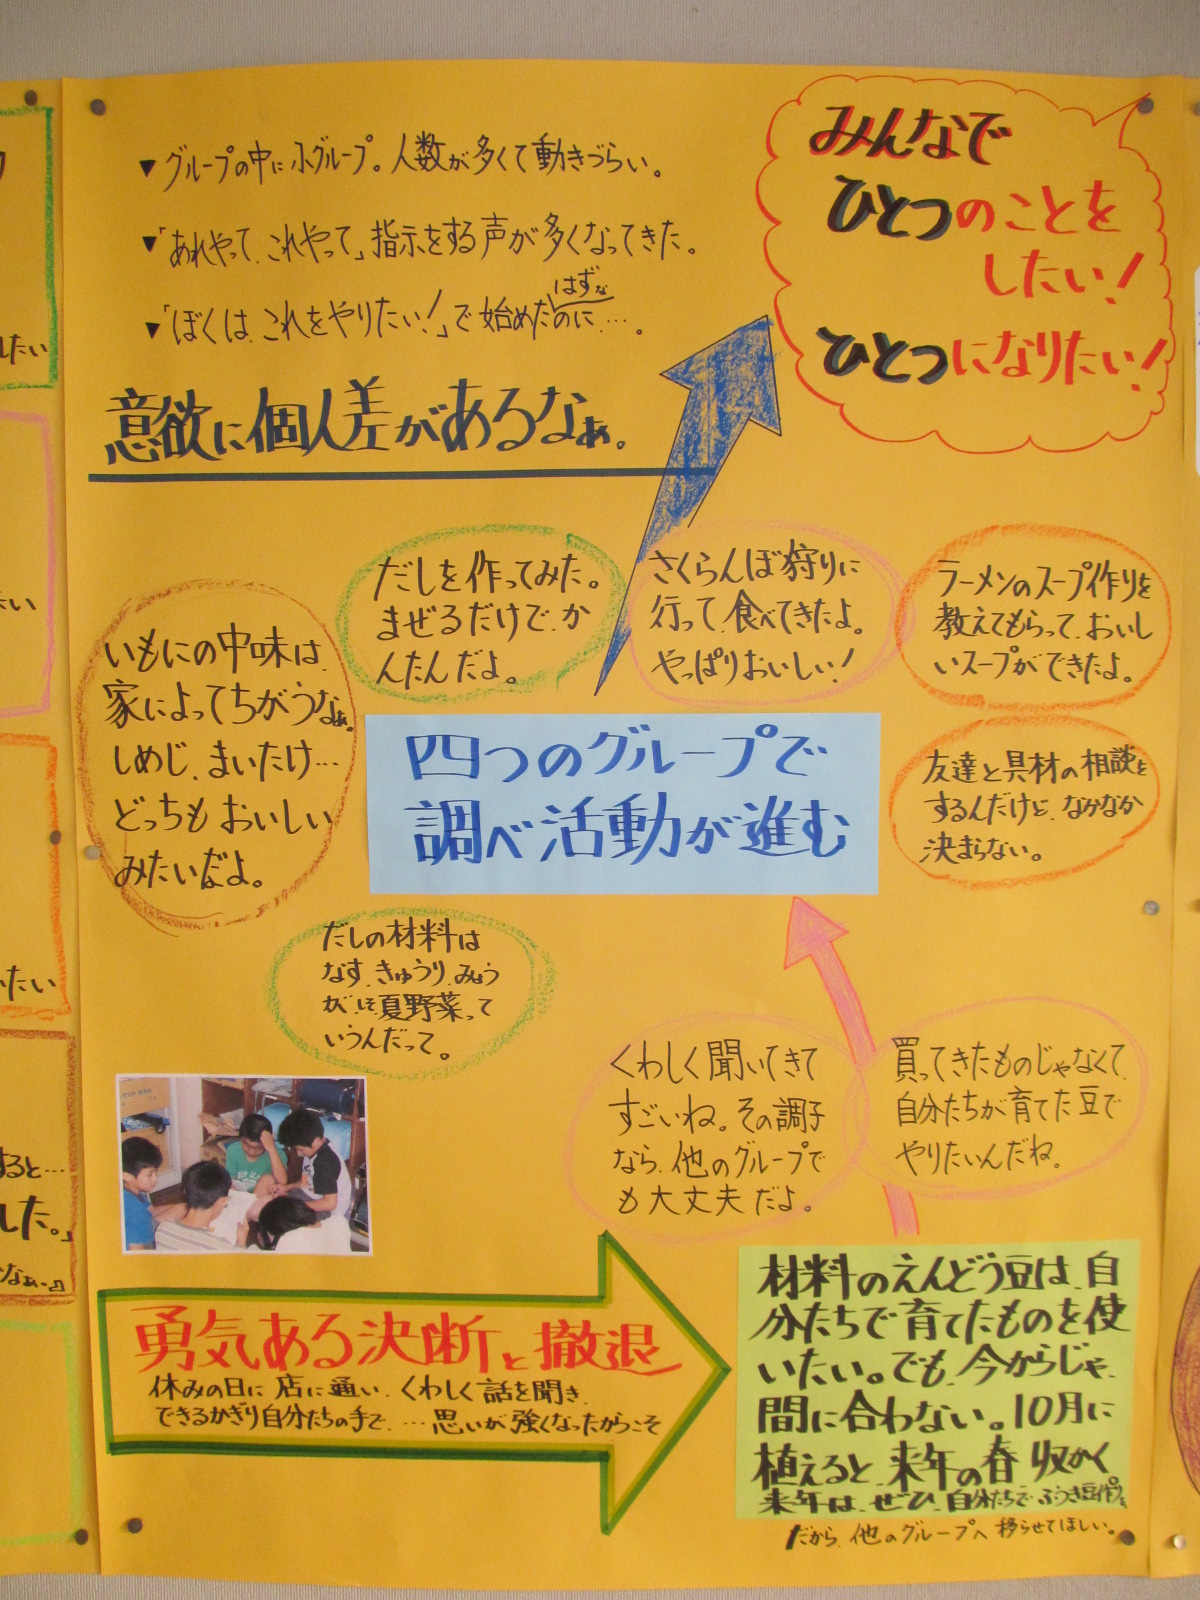 ▼グループの中に小グループ。人数が多くて動きづらい。
▼「あれやって、これやって」指示をする声が多くなってきた。
はずな
▼「ぼくは、これをやりたい！」で始めたのに…。
意欲に個人差があるなぁ。
みんなで
ひとつのことを
したい！
ひとつになりたい！
だしを作ってみた。
まぜるだけで、か
んたんだよ。
さくらんぼ狩りに
行って、食べてきたよ。
やっぱりおいしい！
ラーメンのスープ作りを
教えてもらって、おいし
いスープができたよ。
いもにの中味は、
家によってちがうなぁ。
しめじ、まいたけ…
どっちもおいしい
みたいだよ。
四つのグループで
調べ活動が進む
友達と具材の相談を
するんだけど、なかなか
決まらない。
だしの材料は
なす、きゅうり、みょう
が、しそ 夏野菜って
いうんだって。
くわしく聞いてきて
すごいね。その調子
なら、他のグループで
も大丈夫だよ。
買ってきたものじゃなくて、
自分たちが育てた豆で
やりたいんだね。
勇気ある決断と撤退
休みの日に店に通い、くわしく話を聞き、
できるかぎり自分たちの手で、…思いが強くなったからこそ
材料のえんどう豆は、自
分たちで育てたものを使
いたい。でも、今からじゃ、
間に合わない。10月に
植えると、来年の春 収かく
来年は、ぜひ、自分たちでふうき豆作りを
だから、他のグループへ移らせてほしい。
したい
たい
いたい
すると…
した。」
なぁ〜♫